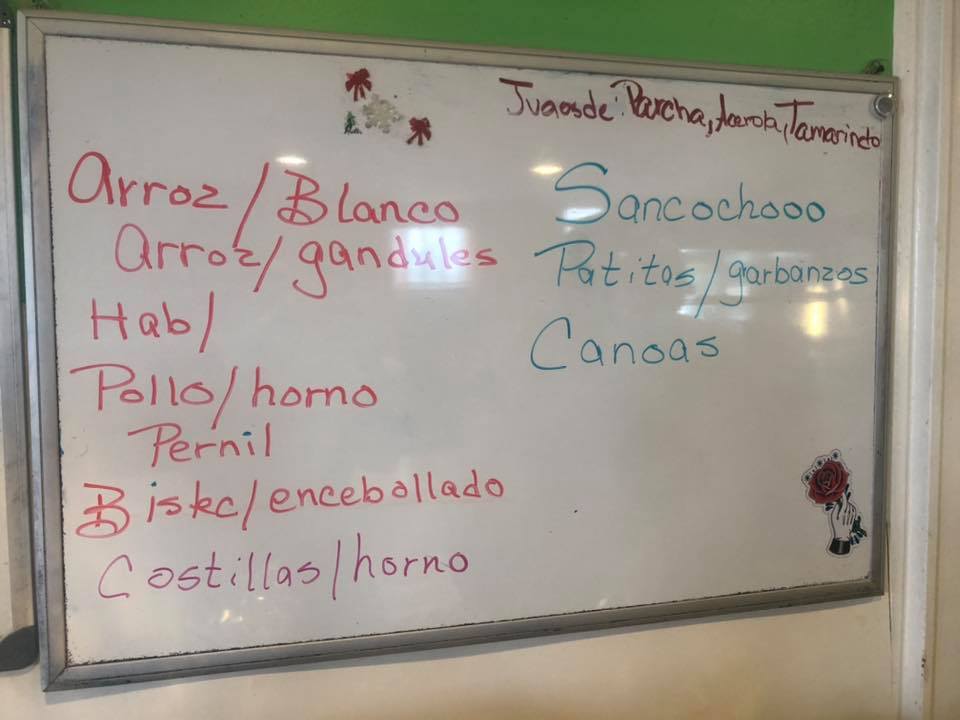 Jugos de: Parcha, Acerola, Tamarindo
Arroz/Blanco
Arroz/gandules
Hab/
Pollo/horno
Pernil
Biskc/encebollado
Costillas/horno
Sancochooo
Patitas/garbanzos
Canoas